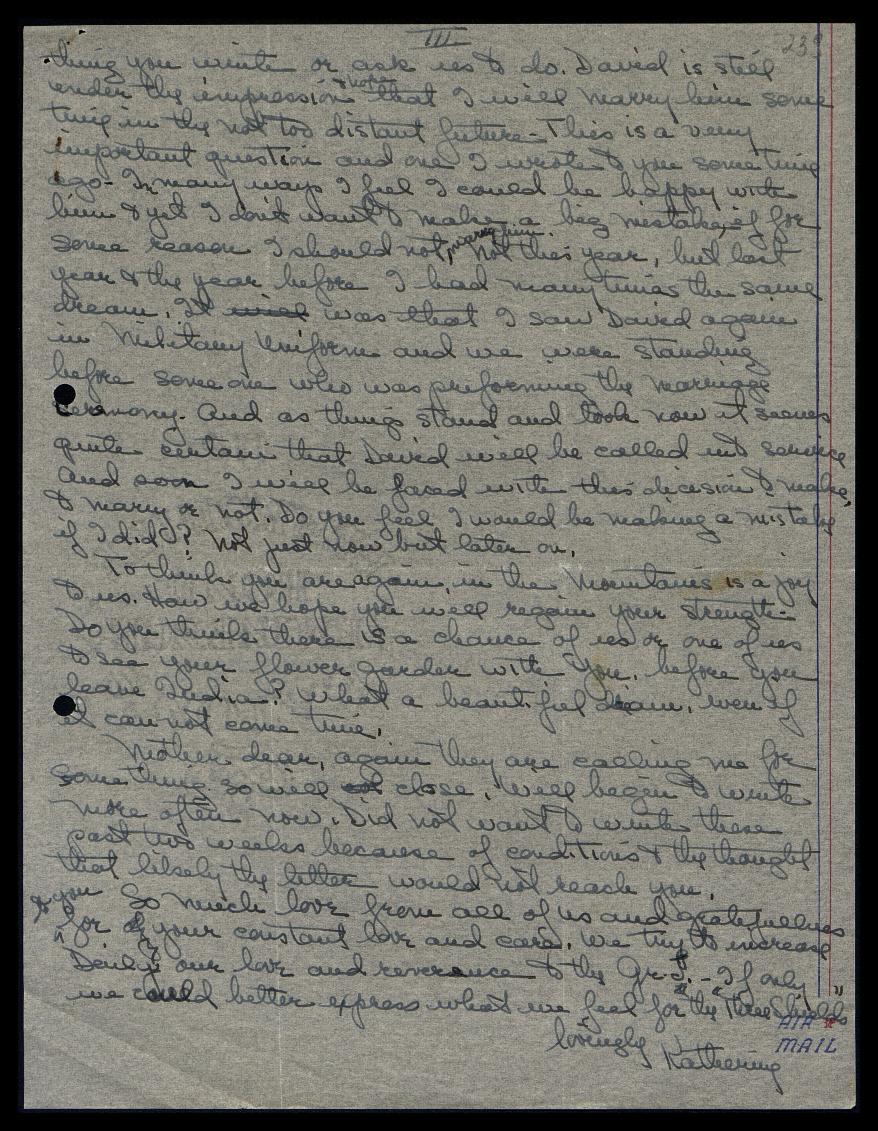 III
239
thing you write or ask us to do. David is still
under the impression & hope that I will marry him some
time in the not too distant future - This is a very
important question and one I wrote to you some time
ago - In many ways I feel I could be happy with
him & yet I don't want to make a big mistake, if for
some reason I should not, marry him. Not this year, but last
year & the year before I had many times the same
dream. It was that I saw David again
in Military Uniform and we were standing
before someone who was preforming the marriage
ceremony. And as things stand and look now it seems
quite certain that David will be called into service
and soon I will be faced with this decision to make,
to marry or not. Do you feel I would be making a mistake
if I did? Not just now but later on.
To think you are again in the Mountains is a joy
to us. How we hope you will regain your strength.
Do you think there is a chance of us or one of us
to see your flower garden with you, before you
leave India? What a beautiful dream, even if
it can not come true.
Mother dear, again they are calling me for
something so will close. Will begin to write
more often now. Did not want to write these
past two weeks because of conditions & the thought
that likely the letter would not reach you.
So much love from all of us and gratefullness
to you for your constant love and care. We try to increase
Daily our love and reverance to the Gr. - If only
we could better express what we feel for the Three Shields"
lovingly Katherine
AIR
MAIL